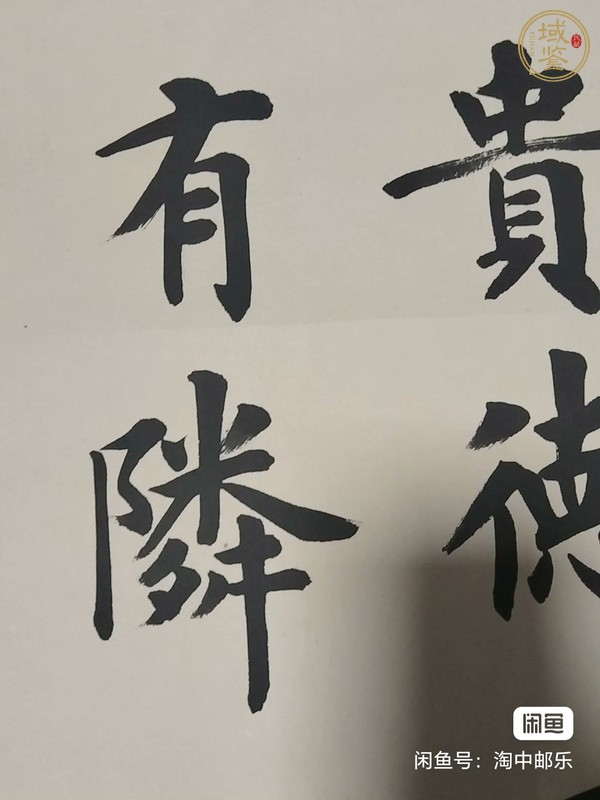 貴德
有隣
域鉴
闲鱼
闲鱼号：淘中邮乐